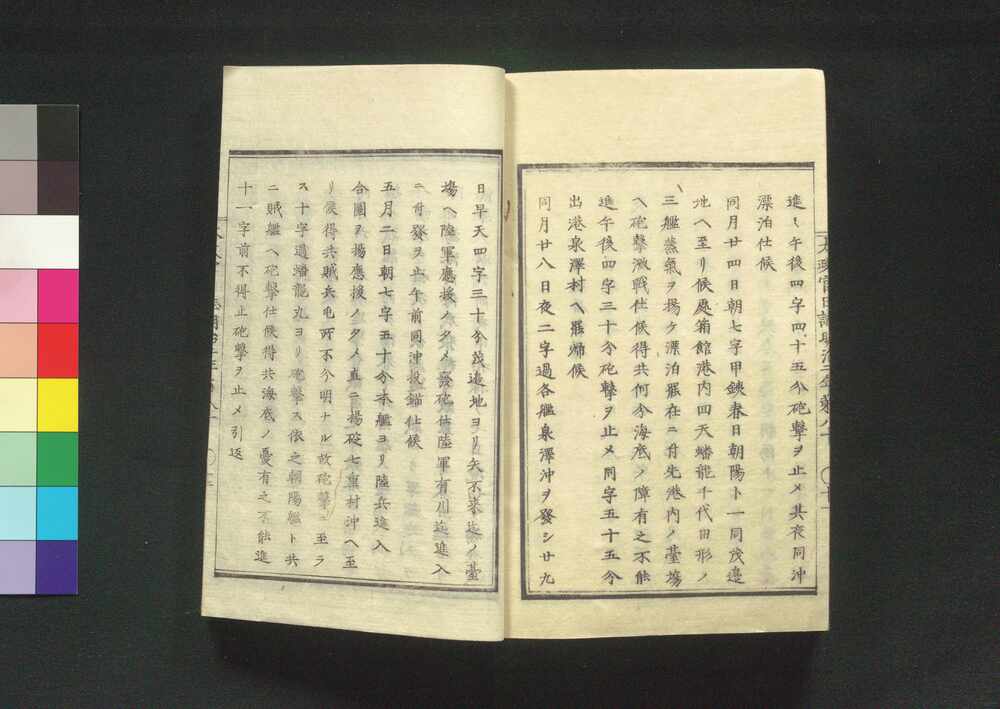 進シ午後四字四十五分砲撃ヲ止メ其夜同沖
漂泊仕候
同月廿四日朝七字甲鉄春日朝陽ト一同茂邉
地ヘ至リ候處箱館港内回天蟠龍千代田形ノ
三艦蒸氣ヲ揚ケ漂泊罷在ニ舟先港内ノ臺場
ヘ砲撃激戦仕候得共何分海底ノ障有之不能
進午後四字三十分砲撃ヲ止メ同字五十五分
出港泉澤村ヘ罷帰候
同月廿八日夜二字過各艦泉澤沖ヲ發シ廿九
日早天四字三十分茂邉地ヨリ矢不来迄ノ臺
場ヘ陸軍應援ノタメ發砲仕陸軍有川迄進入
ニ舟發ヲ止午前同沖投錨仕候
五月二日朝七字五十分本艦ヨリ陸兵進入
合圖ヲ揚應援ノタメ直ニ揚碇七重村沖ヘ至
リ候得共賊兵屯所不分明ナル故砲撃ニ至ラ
ス十字過蟠龍丸ヨリ砲撃ス依之朝陽艦ト共
ニ賊艦ヘ砲撃仕候得共海底ノ憂有之不能進
十一字前不得止砲撃ヲ止メ引返